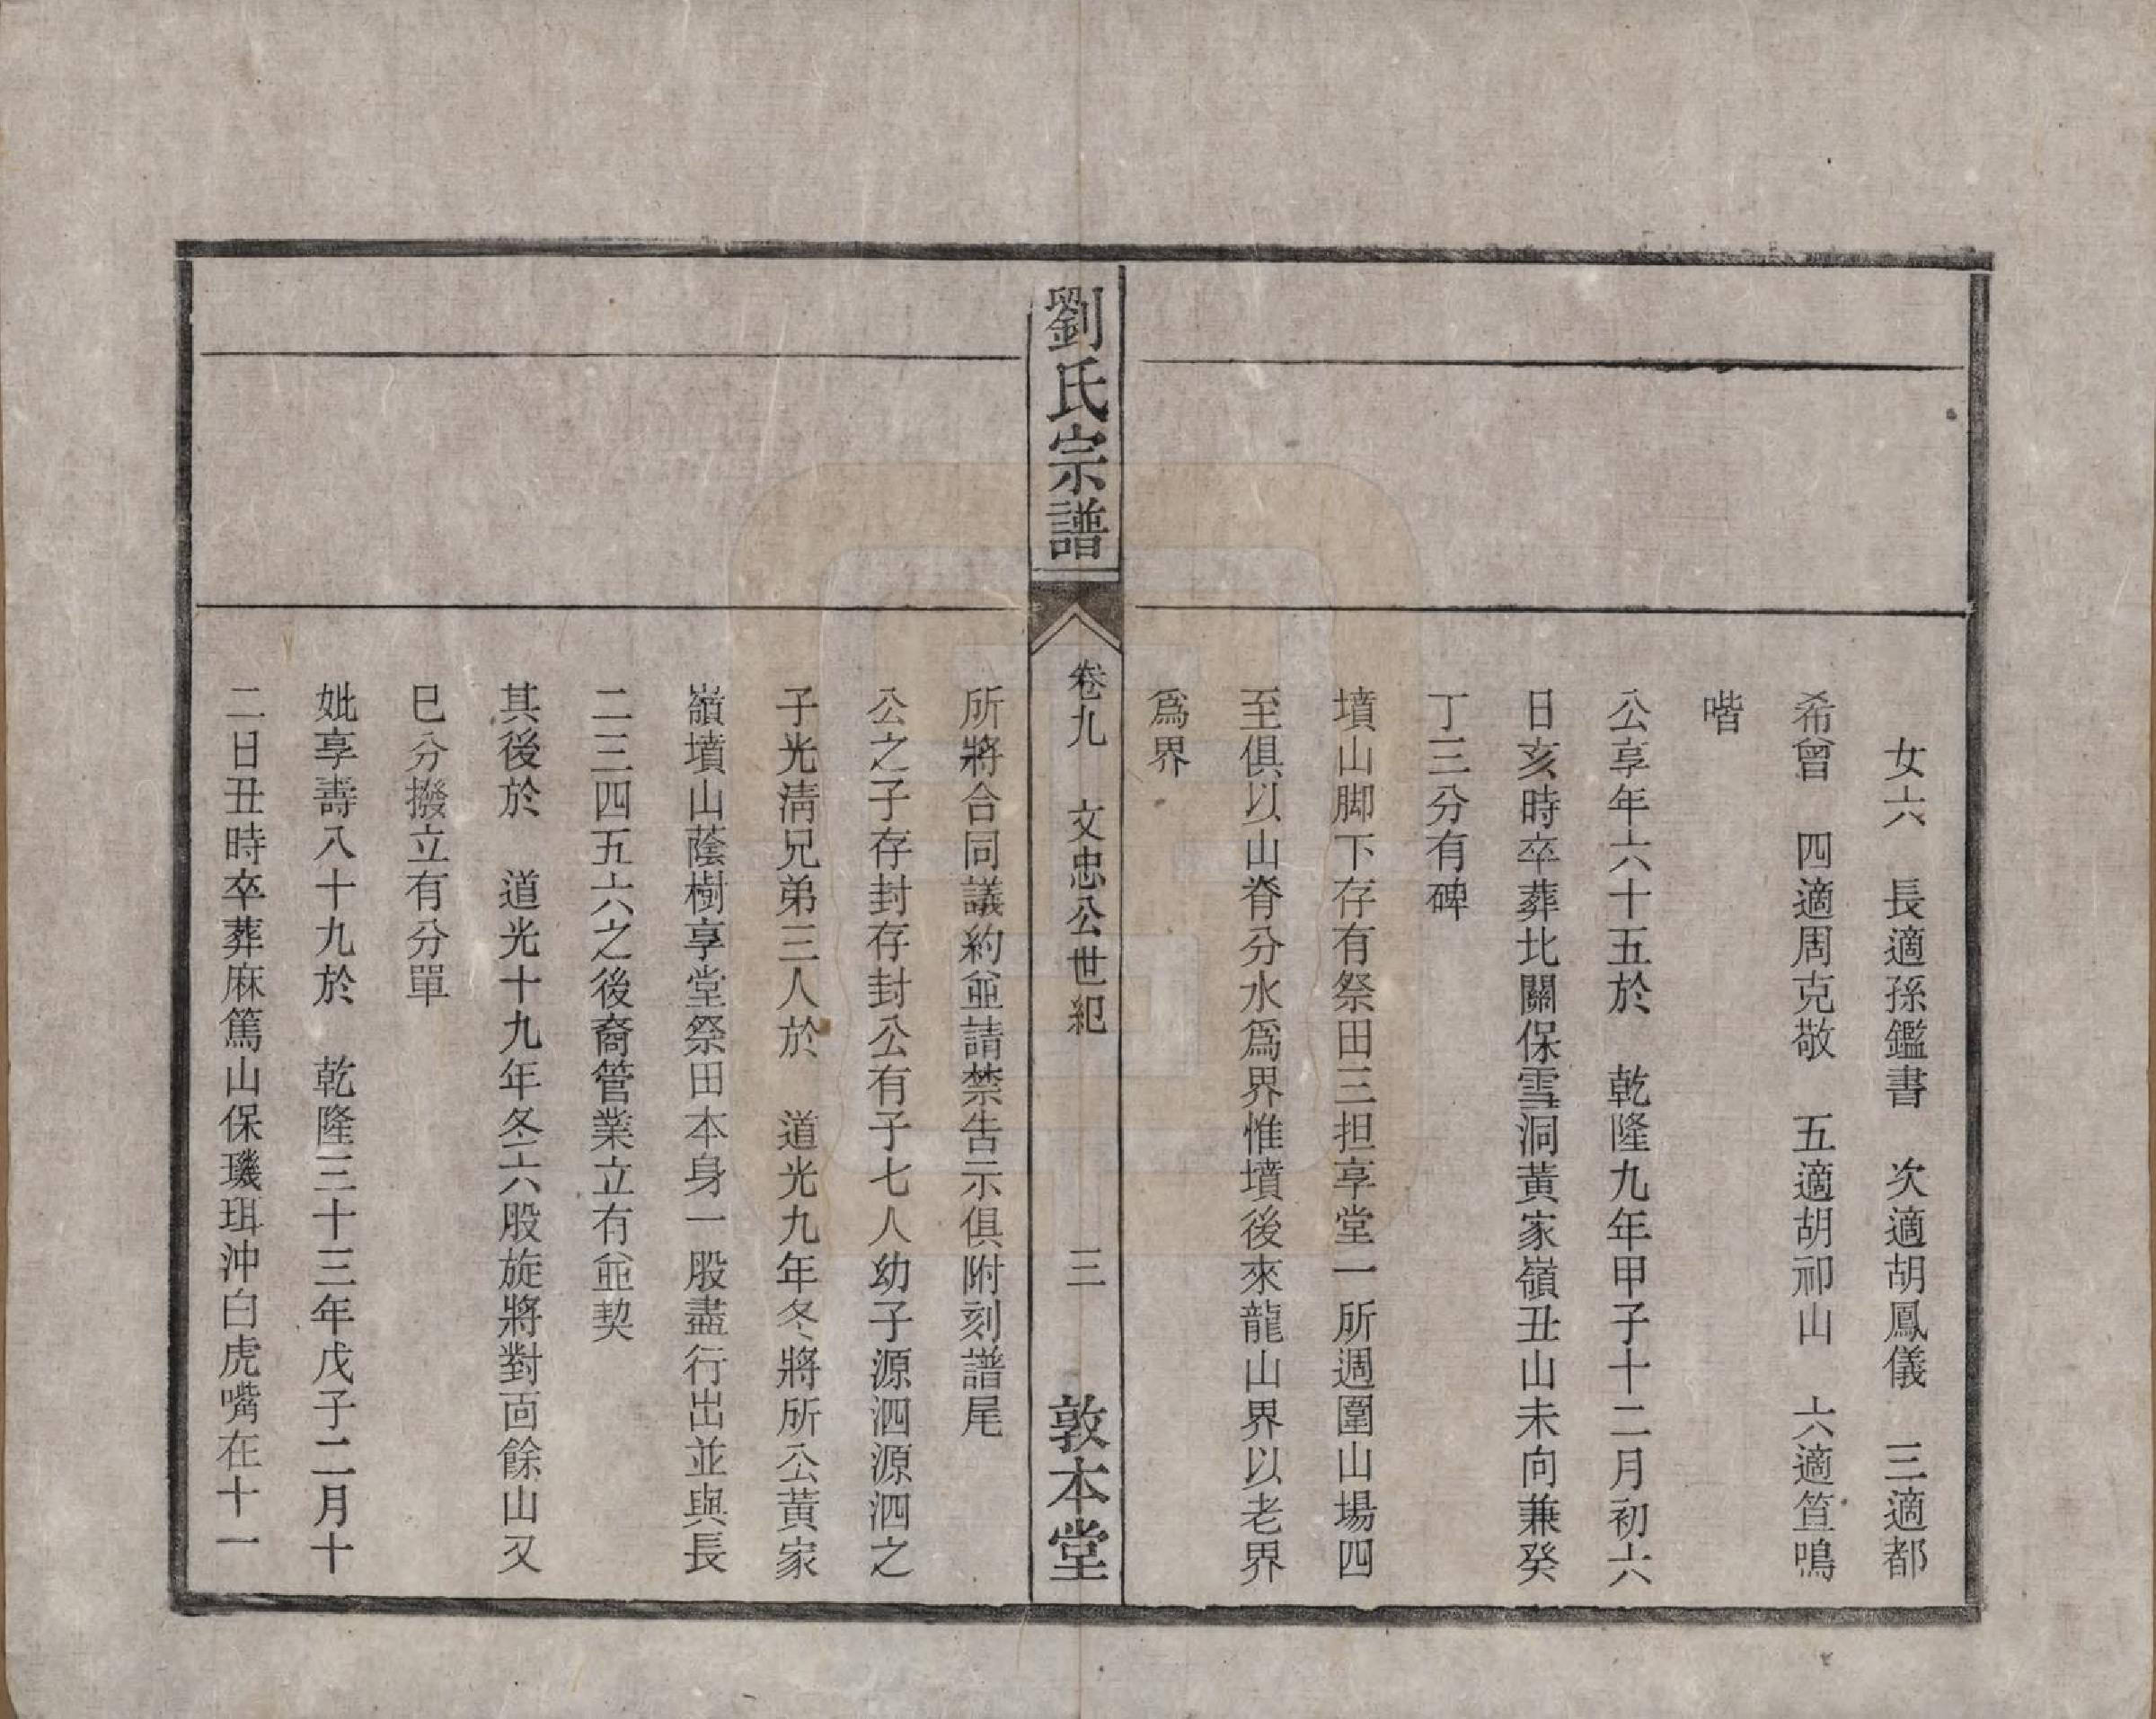 女六　長適孫鑑書　次適胡鳳儀　三適都
希曾　四適周克敬　五適胡祁山　六適笪鳴
喈
公享年六十五於　乾隆九年甲子十二月初六
日亥時卒葬北關保雪洞黃家嶺丑山未向兼癸
丁三分有碑
墳山脚下存有祭田三担享堂一所週圍山場四
至俱以山脊分水爲界惟墳後來龍山界以老界
爲界
劉氏宗譜
卷九　文忠公世紀　三
敦本堂
所將合同議約並請禁告示俱附刻譜尾
公之子存封存封公有子七人幼子源泗源泗之
子光淸兄弟三人於　道光九年冬將所公黃家
嶺墳山蔭樹享堂祭田本身一股盡行出並與長
二三四五六之後裔管業立有並契
其後於　道光十九年冬六股旋將對面餘山又
巳分撥立有分單
妣享壽八十九於　乾隆三十三年戊子二月十
二日丑時卒葬麻篤山保璣珥沖白虎嘴在十一